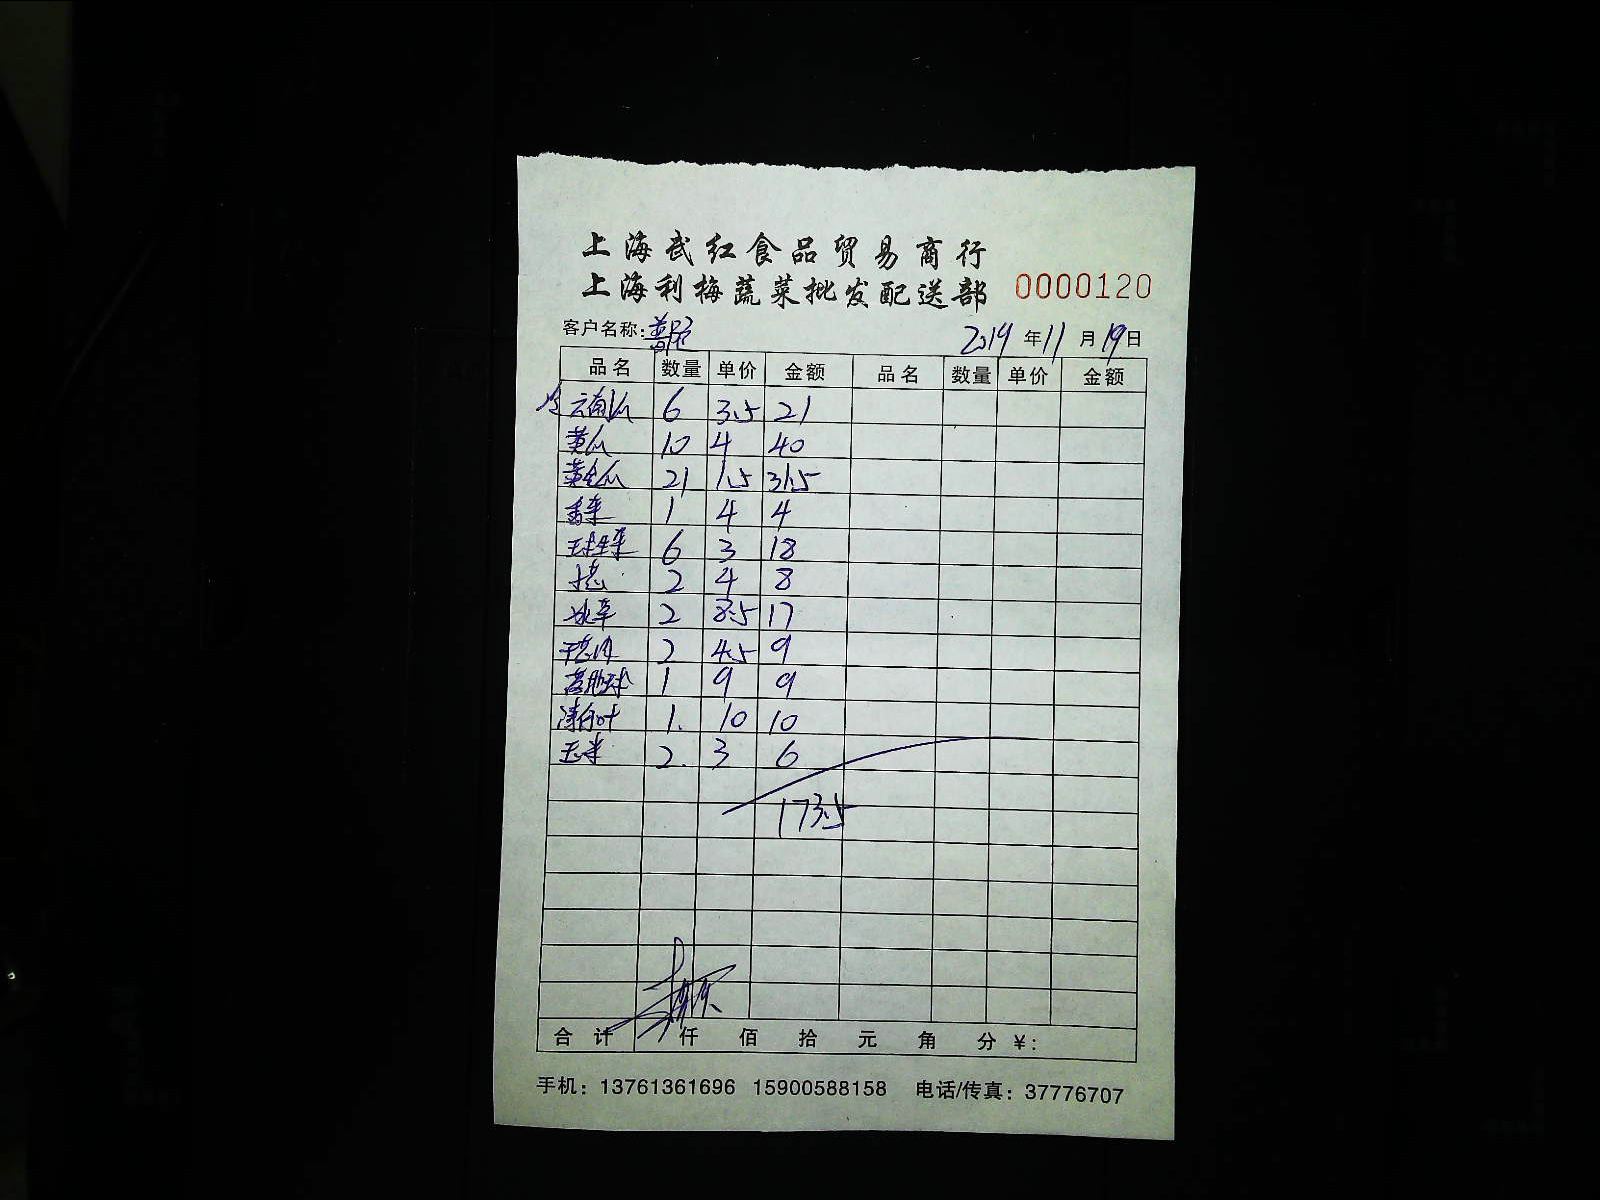 上海武红食品贸易商行
上海利梅蔬菜批发配送部 0000120
客户名称: 2019年11月19日
品名 数量 单价 金额 品名 数量 单价 金额
6 3.5 21
黄瓜 10 4 40
黄金瓜 21 1.5 31.5
香菜 1 4 4
球生菜 6 3 18
2 4 8
2 8.5 17
2 4.5 9
1 9 9
1. 10 10
玉米 2. 3 6
173.5
合计 仟 佰 拾 元 角 分 ¥:
手机: 13761361696 15900588158 电话/传真: 37776707